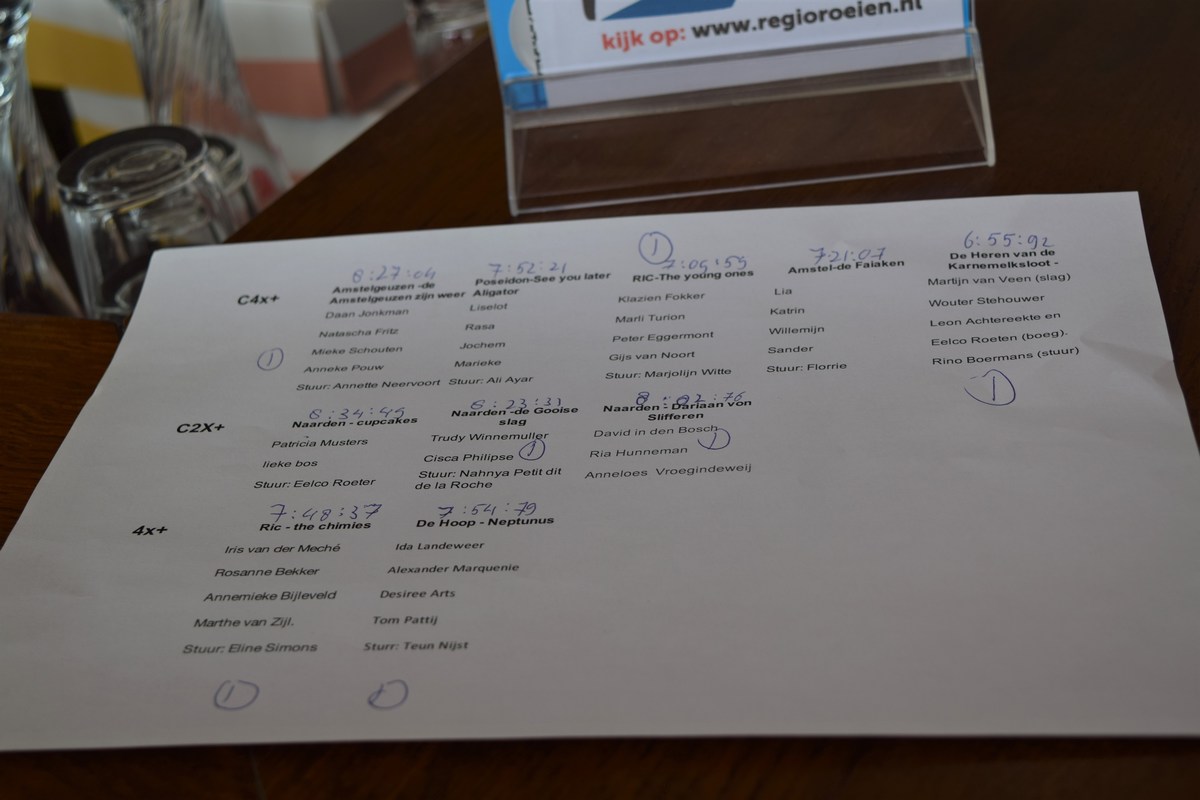 kijk op: www.regioroeien.nl
C4x+
8:27:04
Amstelgeuzen -de
Amstelgeuzen zijn weer
Daan Jonkman
Natascha Fritz
Mieke Schouten
Anneke Pouw
Stuur: Annette Neervoort
1
7:52:21
Poseidon-See you later
Aligator
Liselot
Rasa
Jochem
Marieke
Stuur: Ali Ayar
1
7:09:59
RIC-The young ones
Klazien Fokker
Marli Turion
Peter Eggermont
Gijs van Noort
Stuur: Marjolijn Witte
721:07
Amstel-de Faiaken
Lia
Katrin
Willemijn
Sander
Stuur: Florrie
6:55:92
De Heren van de
Karnemelksloot -
Martijn van Veen (slag)
Wouter Stehouwer
Leon Achtereekte en
Eelco Roeten (boeg).
Rino Boermans (stuur)
1
C2X+
8:34:45
Naarden - cupcakes
Patricia Musters
lieke bos
Stuur: Eelco Roeter
8:23:31
Naarden -de Gooise
slag
Trudy Winnemuller
Cisca Philipse 1
Stuur: Nahnya Petit dit
de la Roche
8:02:76
Naarden - Dariaan von
Slifferen
David in den Bosch
Ria Hunneman 1
Anneloes Vroegindeweij
4x+
7:48:37
Ric - the chimies
Iris van der Meché
Rosanne Bekker
Annemieke Bijleveld
Marthe van Zijl.
Stuur: Eline Simons
1
7:54:79
De Hoop - Neptunus
Ida Landeweer
Alexander Marquenie
Desiree Arts
Tom Pattij
Sturr: Teun Nijst
1